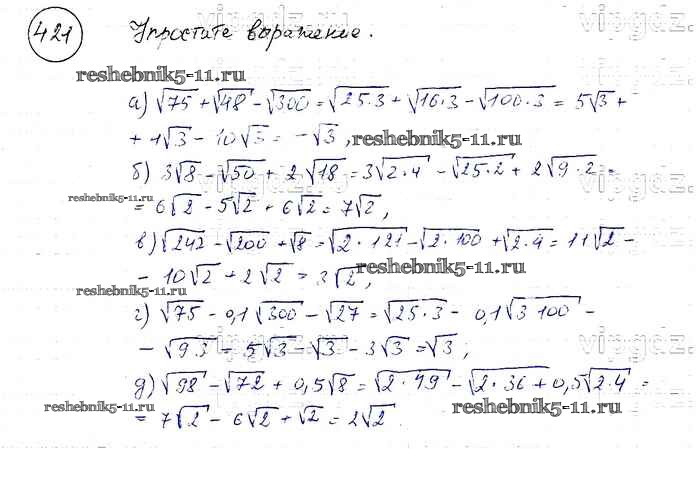 vipgdz.
421 Упростите выражение.
reshebnik5-11.ru
а) √75 + √48 - √300 = √25·3 + √16·3 - √100·3 = 5√3 +
+ 4√3 - 10√3 = -√3,
reshebnik5-11.ru
б) 3√8 - √50 + 2√18 = 3√2·4 - √25·2 + 2√9·2 =
reshebnik5-11.ru
= 6√2 - 5√2 + 6√2 = 7√2,
vipgdz.
в) √242 - √200 + √8 = √2·121 - √2·100 + √2·4 = 11√2 -
- 10√2 + 2√2 = 3√2,
reshebnik5-11.ru
reshebnik5-11.ru
г) √75 - 0,1√300 - √27 = √25·3 - 0,1√3·100 -
vipgdz.
- √9·3 = 5√3 - √3 - 3√3 = √3;
д) √98 - √72 + 0,5√8 = √2·49 - √2·36 + 0,5√2·4 =
reshebnik5-11.ru
reshebnik5-11.ru
= 7√2 - 6√2 + √2 = 2√2.